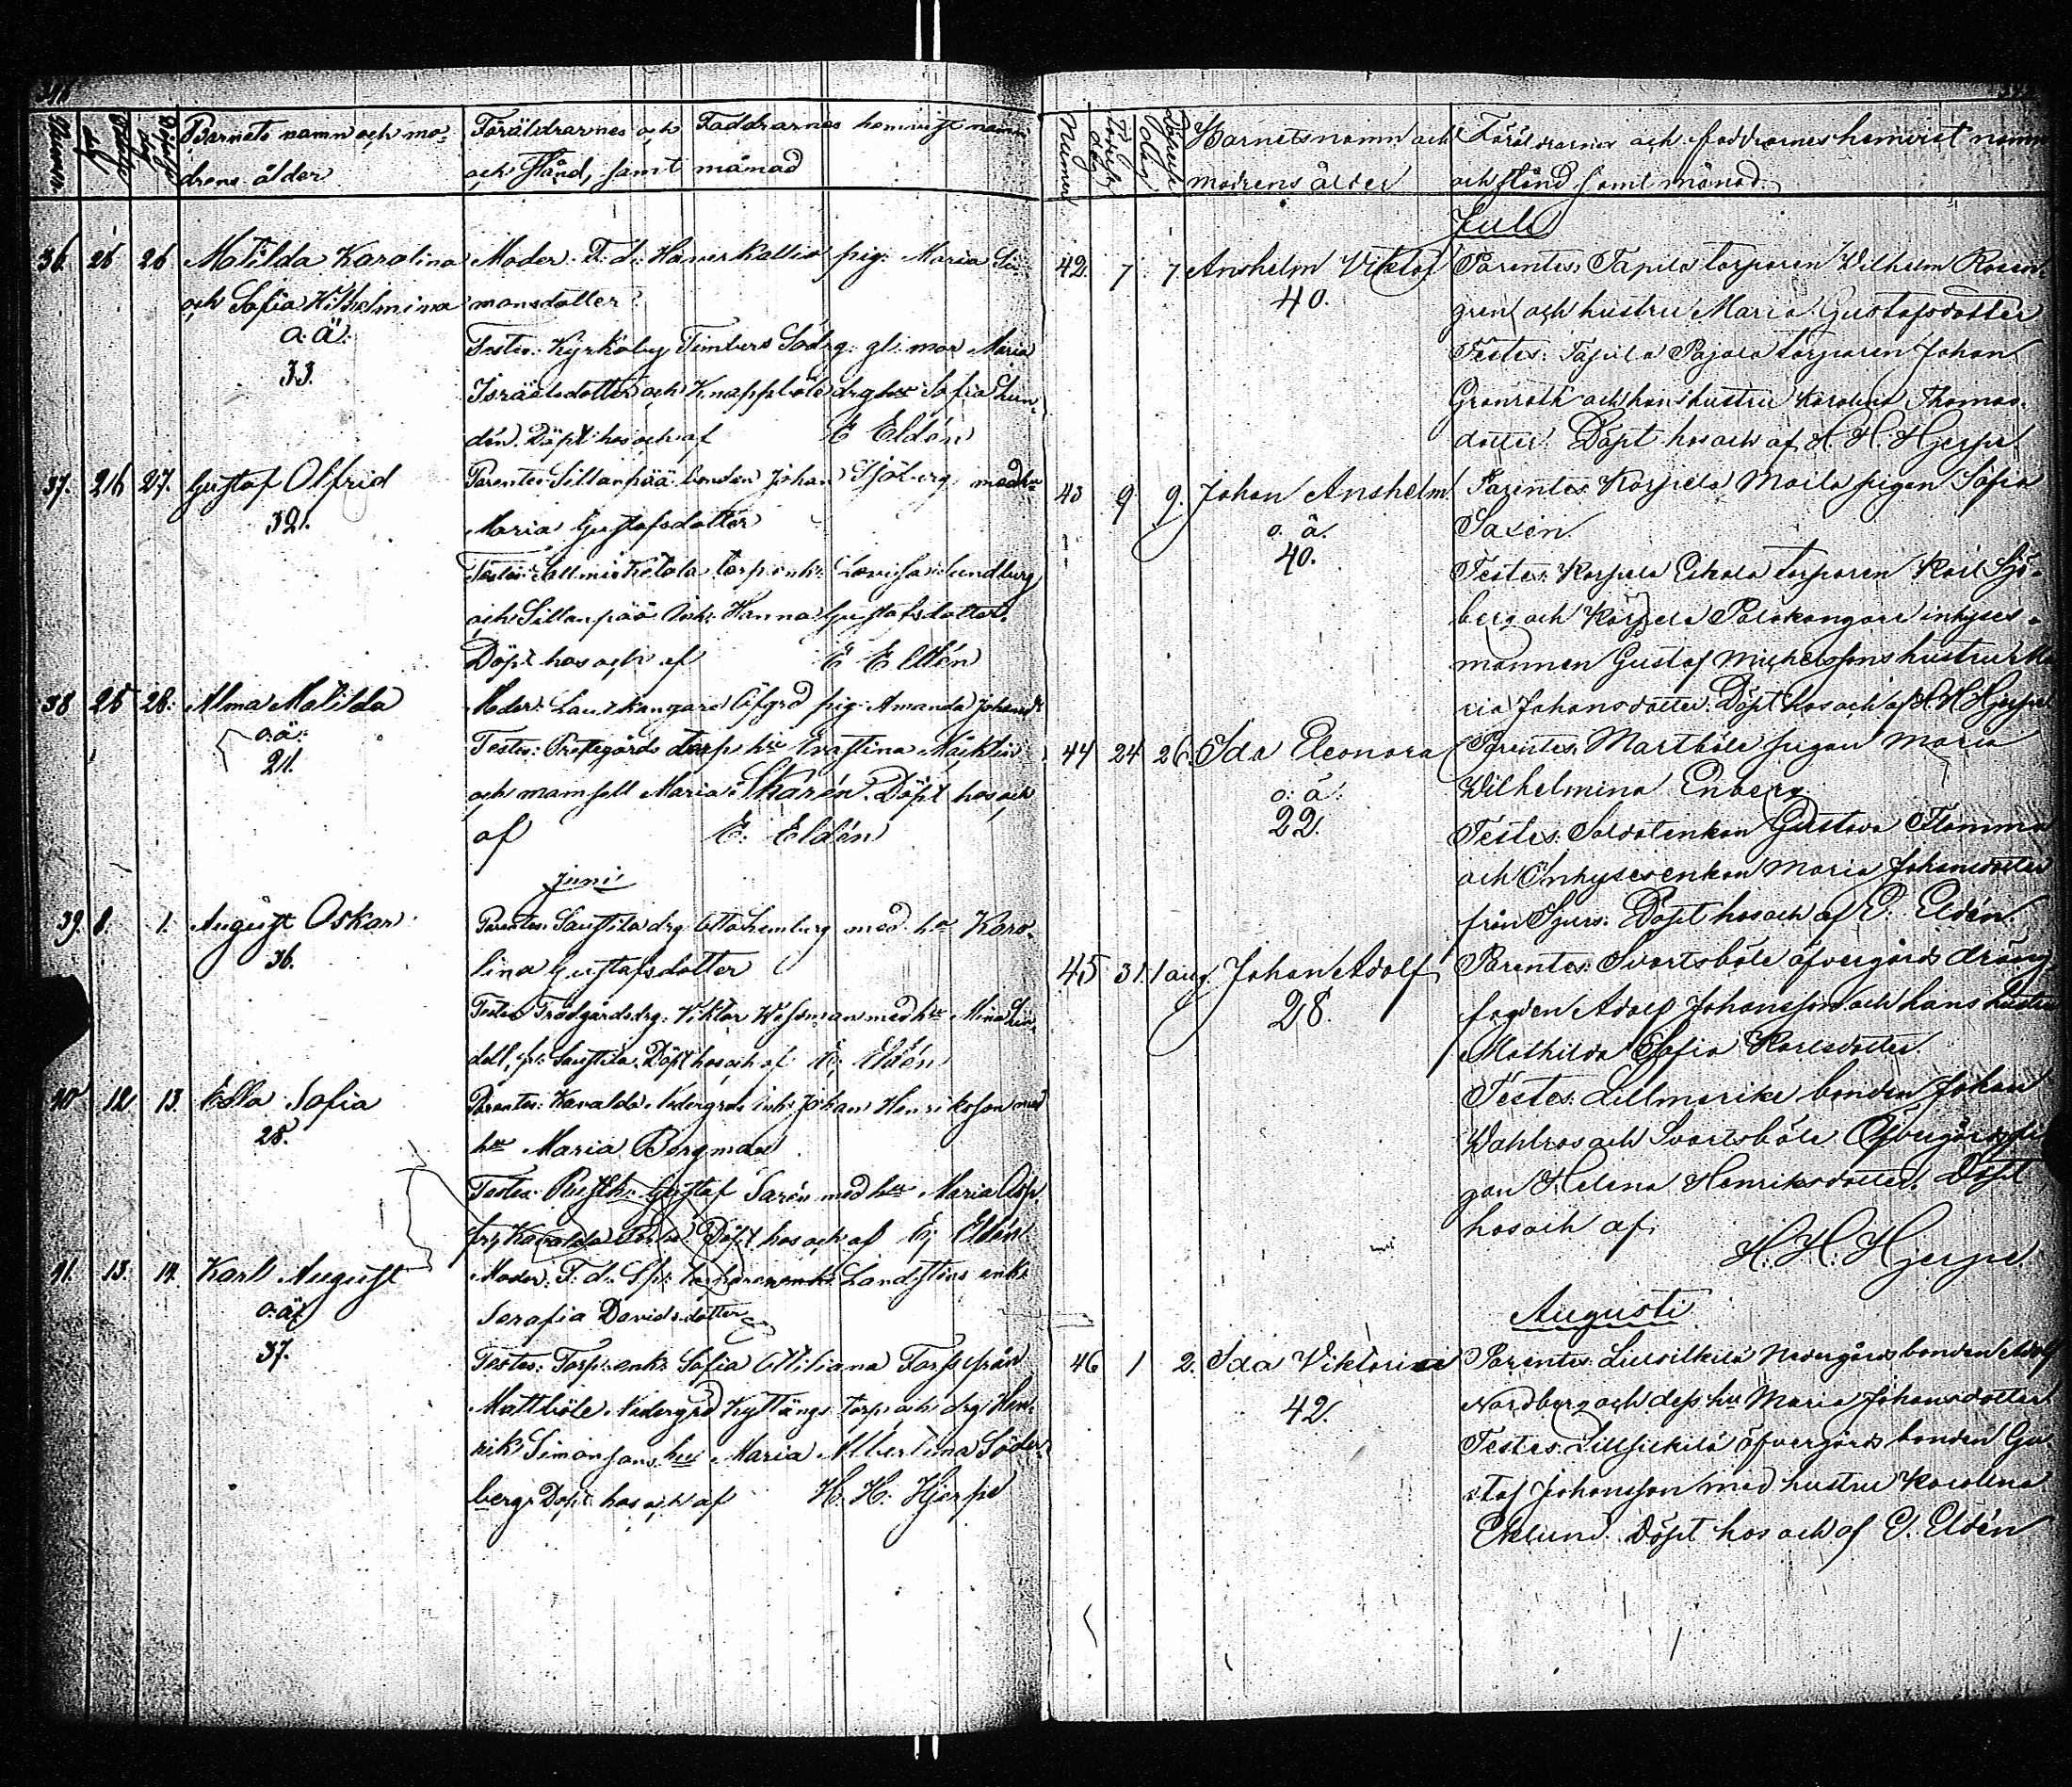 Numer
Födelse dag
Barnets namn och mo-
drens ålder
Föräldrarnes och Faddrarnes hemvist namn
och stånd, samt månad
36. 25 26 Matilda Karolina
och Sofia Wilhelmina
o.ä.
33.
Moder: T. d. pig: Maria Si-
monsdotter
Testes: Kyrkoby Timbers Södrg: gl: mor Maria
Israelsdotter och Knappböle drg hru Sofia Lun-
dén. Döpt hos och af E Eldén
37. 26 27. Gustaf Alfrid
32.
Parentes Sillanpää bonden Johan Sjöberg med hru
Maria Gustafsdotter
Testes: torp.enk: Lovisa Lundberg
och Sillanpää Inh: Hanna Gustafsdotter.
Döpt hos och af E Eldén
38 25 28. Alma Matilda
o.ä.
21.
Moder: Lautkangare Öfgrd pig: Amanda Johansdr
Testes: Prestegårds torp hru Evastina Mäcklin
och mamsell Maria Skarén. Döpt hos och
af E. Eldén
Juni
39. 8. 1. August Oskar
36.
Parentes: Saustila drg Otto Lemberg med hru Karo-
lina Gustafsdotter
Testes Trädgårdsdrg: Viktor Wessman med hru Mina Lin-
dell, fr: Saustila. Döpt hos och af E. Eldén
40 12 13. Ella Sofia
28.
Parentes: Kavalda Nedergrds Inh: Johan Henriksson med
hru Maria Bergman
Testes: Rusth: Gustaf Sarén med hru Maria
frn Kavalda Döpt hos och af E. Eldén
41. 13. 14. Karl August
o.ä.
37.
Moder: T. d. Landstens enka
Serafia Davidsdotter
Testes: Torp:enk: Sofia Ottiliana Fors från
Mattböle Nedergrd Kyttängs torp och drg Hen-
rik Simonsons hru Maria Albertina Söder-
berg. Döpt hos och af H. H. Hjerpe
Numer
Födelse dag
Döpelse dag
Barnets namn och
modrens ålder
Föräldrarnes och faddrarnes hemvist namn
och stånd samt månad
Juli
42. 7 7 Anshelm Viktor
40.
Parentes: Tapila torparen Wilhelm Rosen-
gren och hustru Maria Gustafsdotter
Testes: Tapila Pajala torparen Johan
Grönroth och hans hustru Karolina Thomas-
dotter. Döpt hos och af H. H. Hjerpe.
43 9 9. Johan Anshelm
o. ä.
40.
Parentes: Korpela Maila pigan Sofia
Saxén.
Testes: Korpela Eskola torparen Karl Sjö-
berg och Korpela Palokangare inhyses-
mannen Gustaf Michelssons hustru Ma
ria Johansdotter. Döpt hos och af H. H. Hjerpe
44 24 26. Ida Eleonora
o. ä.
22.
Parentes: Martböle pigan Maria
Wilhelmina Enberg.
Testes: Soldatenkan Gustava Flamma
och Inhysesenkan Maria Johansdotter
från Spurs. Döpt hos och af E. Eldén.
45 31. 1 aug. Johan Adolf
28.
Parentes: Svartsböle öfvergårds dräng
fogden Adolf Johansson och hans hustru
Mathilda Sofia Karlsdotter.
Testes: Lillmerike bonden Johan
Wahlros och Svartsböle Öfvergårds pi
gan Helena Henriksdotter. Döpt
hos och af.
H. H. Hjerpe.
Augusti
46 1 2. Ida Viktorina
42.
Parentes: Lillsilkilä Nedergårds bonden Adolf
Nordberg och dess hru Maria Johansdotter.
Testes: Lillsilkilä öfvergårds bonden Gu-
staf Johansson med hustru Karolina
Eklund. Döpt hos och af E. Eldén